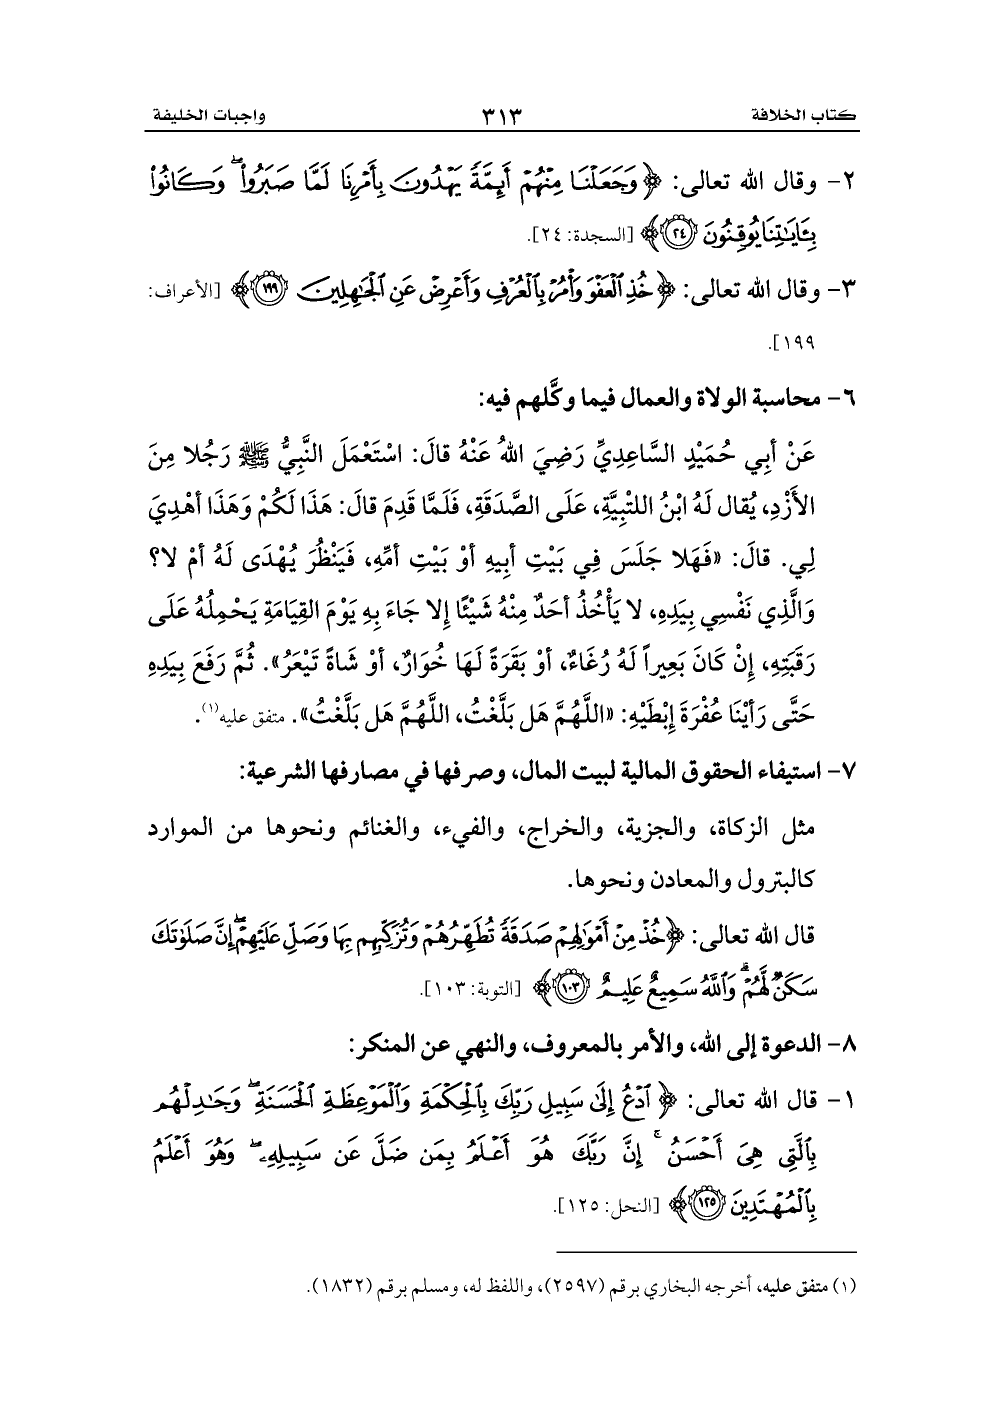 كتاب الخلافة ٣١٣ واجبات الخليفة
٢- وقال الله تعالى: ﴿وَجَعَلْنَا مِنْهُمْ أَئِمَّةً يَهْدُونَ بِأَمْرِنَا لَمَّا صَبَرُوا۟ ۖ وَكَانُوا۟
بِـَٔايَـٰتِنَا يُوقِنُونَ ٢٤﴾ [السجدة: ٢٤].
٣- وقال الله تعالى: ﴿خُذِ ٱلْعَفْوَ وَأْمُرْ بِٱلْعُرْفِ وَأَعْرِضْ عَنِ ٱلْجَـٰهِلِينَ ١٩٩﴾ [الأعراف:
١٩٩].
٦- محاسبة الولاة والعمال فيما وكَّلهم فيه:
عَنْ أبِي حُمَيْدٍ السَّاعِدِيِّ رَضِيَ اللهُ عَنْهُ قالَ: اسْتَعْمَلَ النَّبِيُّ ﷺ رَجُلا مِنَ
الأَزْدِ، يُقال لَهُ ابْنُ اللتْبِيَّةِ، عَلَى الصَّدَقَةِ، فَلَمَّا قَدِمَ قالَ: هَذَا لَكُمْ وَهَذَا أهْدِيَ
لِي. قالَ: «فَهَلا جَلَسَ فِي بَيْتِ أبِيهِ أوْ بَيْتِ أمِّهِ، فَيَنْظُرَ يُهْدَى لَهُ أمْ لا؟
وَالَّذِي نَفْسِي بِيَدِهِ، لا يَأْخُذُ أحَدٌ مِنْهُ شَيْئًا إلا جَاءَ بِهِ يَوْمَ القِيَامَةِ يَحْمِلُهُ عَلَى
رَقَبَتِهِ، إنْ كَانَ بَعِيراً لَهُ رُغَاءٌ، أوْ بَقَرَةً لَهَا خُوَارٌ، أوْ شَاةً تَيْعَرُ». ثُمَّ رَفَعَ بِيَدِهِ
حَتَّى رَأيْنَا عُفْرَةَ إبْطَيْهِ: «اللَّهُمَّ هَل بَلَّغْتُ، اللَّهُمَّ هَل بَلَّغْتُ». متفق عليه(١).
٧- استيفاء الحقوق المالية لبيت المال، وصرفها في مصارفها الشرعية:
مثل الزكاة، والجزية، والخراج، والفيء، والغنائم ونحوها من الموارد
كالبترول والمعادن ونحوها.
قال الله تعالى: ﴿خُذْ مِنْ أَمْوَٰلِهِمْ صَدَقَةً تُطَهِّرُهُمْ وَتُزَكِّيهِم بِهَا وَصَلِّ عَلَيْهِمْ ۖ إِنَّ صَلَوٰتَكَ
سَكَنٌ لَّهُمْ ۗ وَٱللَّهُ سَمِيعٌ عَلِيمٌ ١٠٣﴾ [التوبة: ١٠٣].
٨- الدعوة إلى الله، والأمر بالمعروف، والنهي عن المنكر:
١- قال الله تعالى: ﴿ٱدْعُ إِلَىٰ سَبِيلِ رَبِّكَ بِٱلْحِكْمَةِ وَٱلْمَوْعِظَةِ ٱلْحَسَنَةِ ۖ وَجَـٰدِلْهُم
بِٱلَّتِى هِىَ أَحْسَنُ ۚ إِنَّ رَبَّكَ هُوَ أَعْلَمُ بِمَن ضَلَّ عَن سَبِيلِهِۦ ۖ وَهُوَ أَعْلَمُ
بِٱلْمُهْتَدِينَ ١٢٥﴾ [النحل: ١٢٥].
(١) متفق عليه، أخرجه البخاري برقم (٢٥٩٧)، واللفظ له، ومسلم برقم (١٨٣٢).